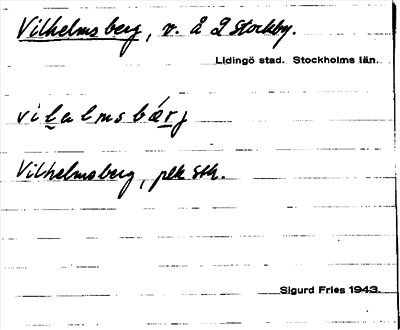 Vilhelmsberg, v. å 2 Stockby.
Lidingö stad. Stockholms län.
vilalmsbärj
Vilhelmsberg, plk Sth.
Sigurd Fries 1943.